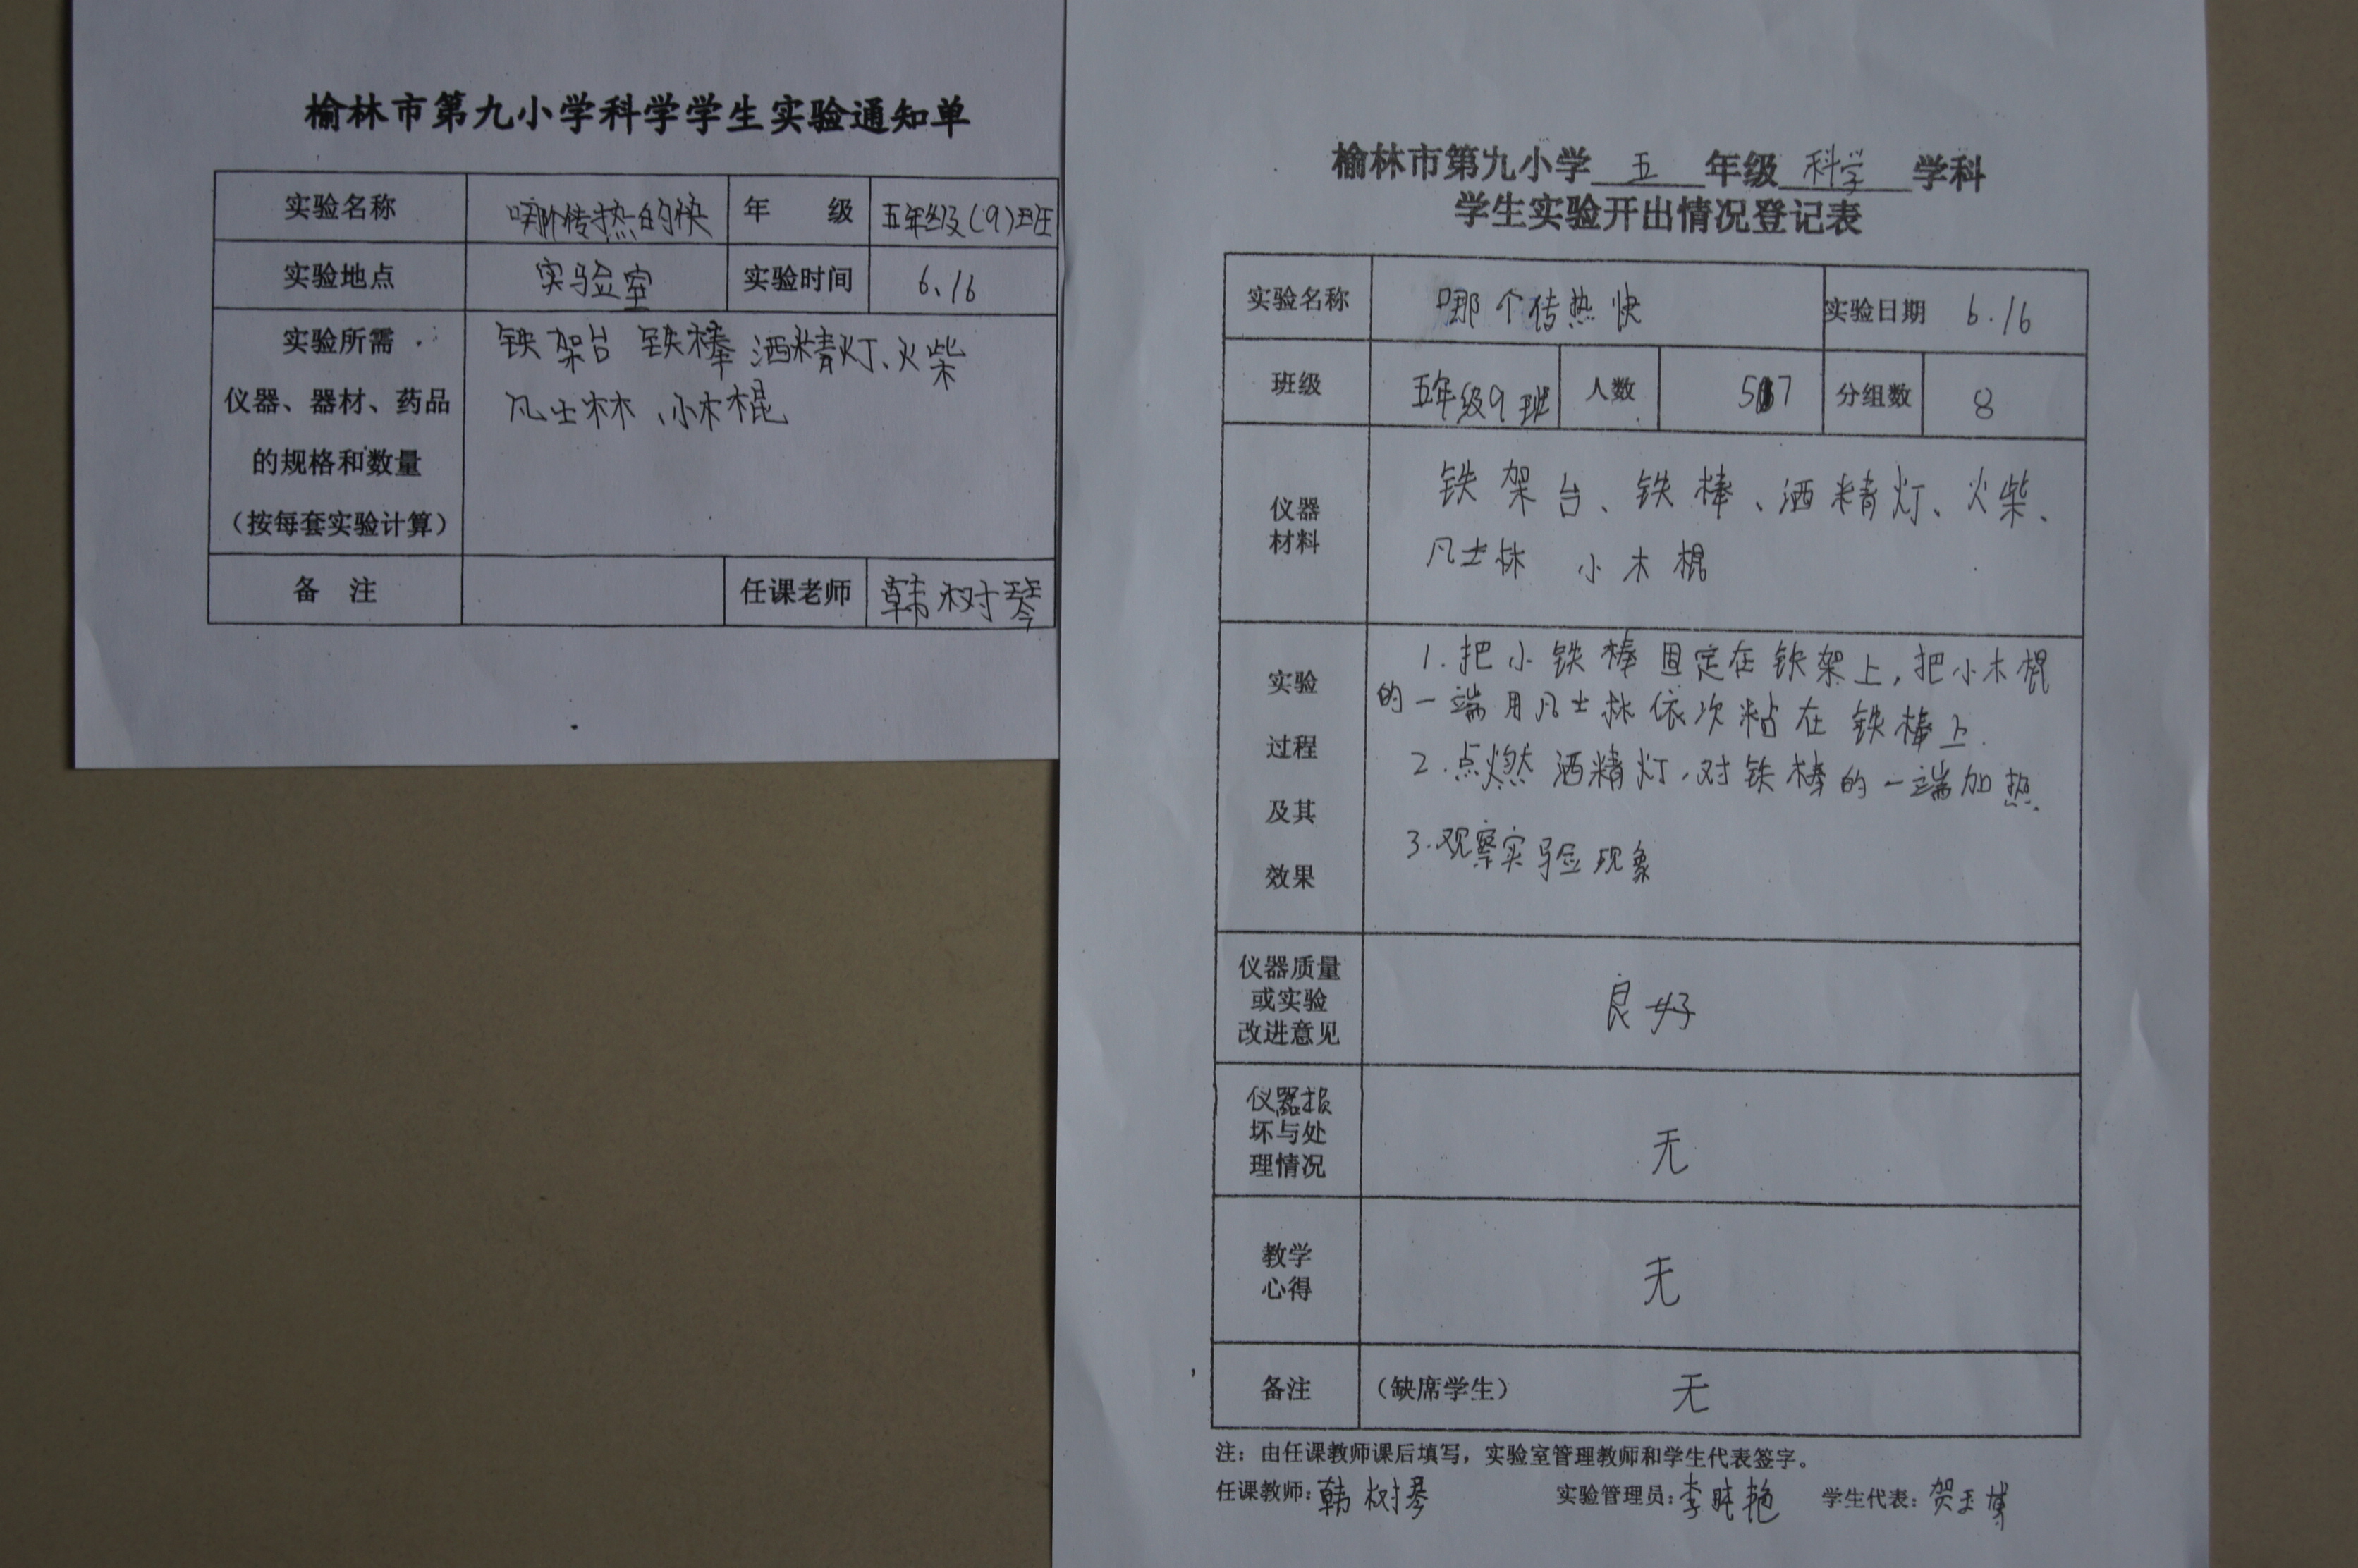 榆林市第九小学科学学生实验通知单
实验名称 哪个传热的快 年 级 五年级(9)班
实验地点 实验室 实验时间 6.16
实验所需
仪器、器材、药品
的规格和数量
(按每套实验计算)
铁架台 铁棒 洒精灯、火柴
凡士林、小木棍
备 注 任课老师 韩树琴
榆林市第九小学 五 年级 科学 学科
学生实验开出情况登记表
实验名称 哪个传热快 实验日期 6.16
班级 五年级9班 人数 57 分组数 8
仪器
材料
铁架台、铁棒、洒精灯、火柴、
凡士林 小木棍
实验
过程
及其
效果
1.把小铁棒固定在铁架上,把小木棍
的一端用凡士林依次粘在铁棒上.
2.点燃洒精灯,对铁棒的一端加热.
3.观察实验现象
仪器质量
或实验
改进意见
良好
仪器损
坏与处
理情况
无
教学
心得
无
备注 (缺席学生) 无
注:由任课教师课后填写,实验室管理教师和学生代表签字。
任课教师:韩树琴 实验管理员:李 艳 学生代表:贺玉博